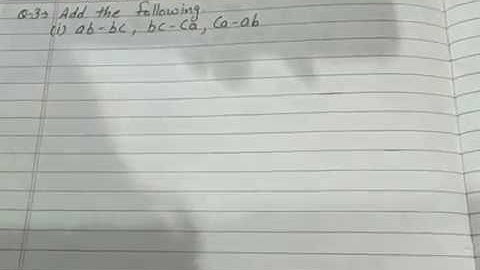 Q-3→ Add the following
(i) ab-bc, bc-ca, ca-ab